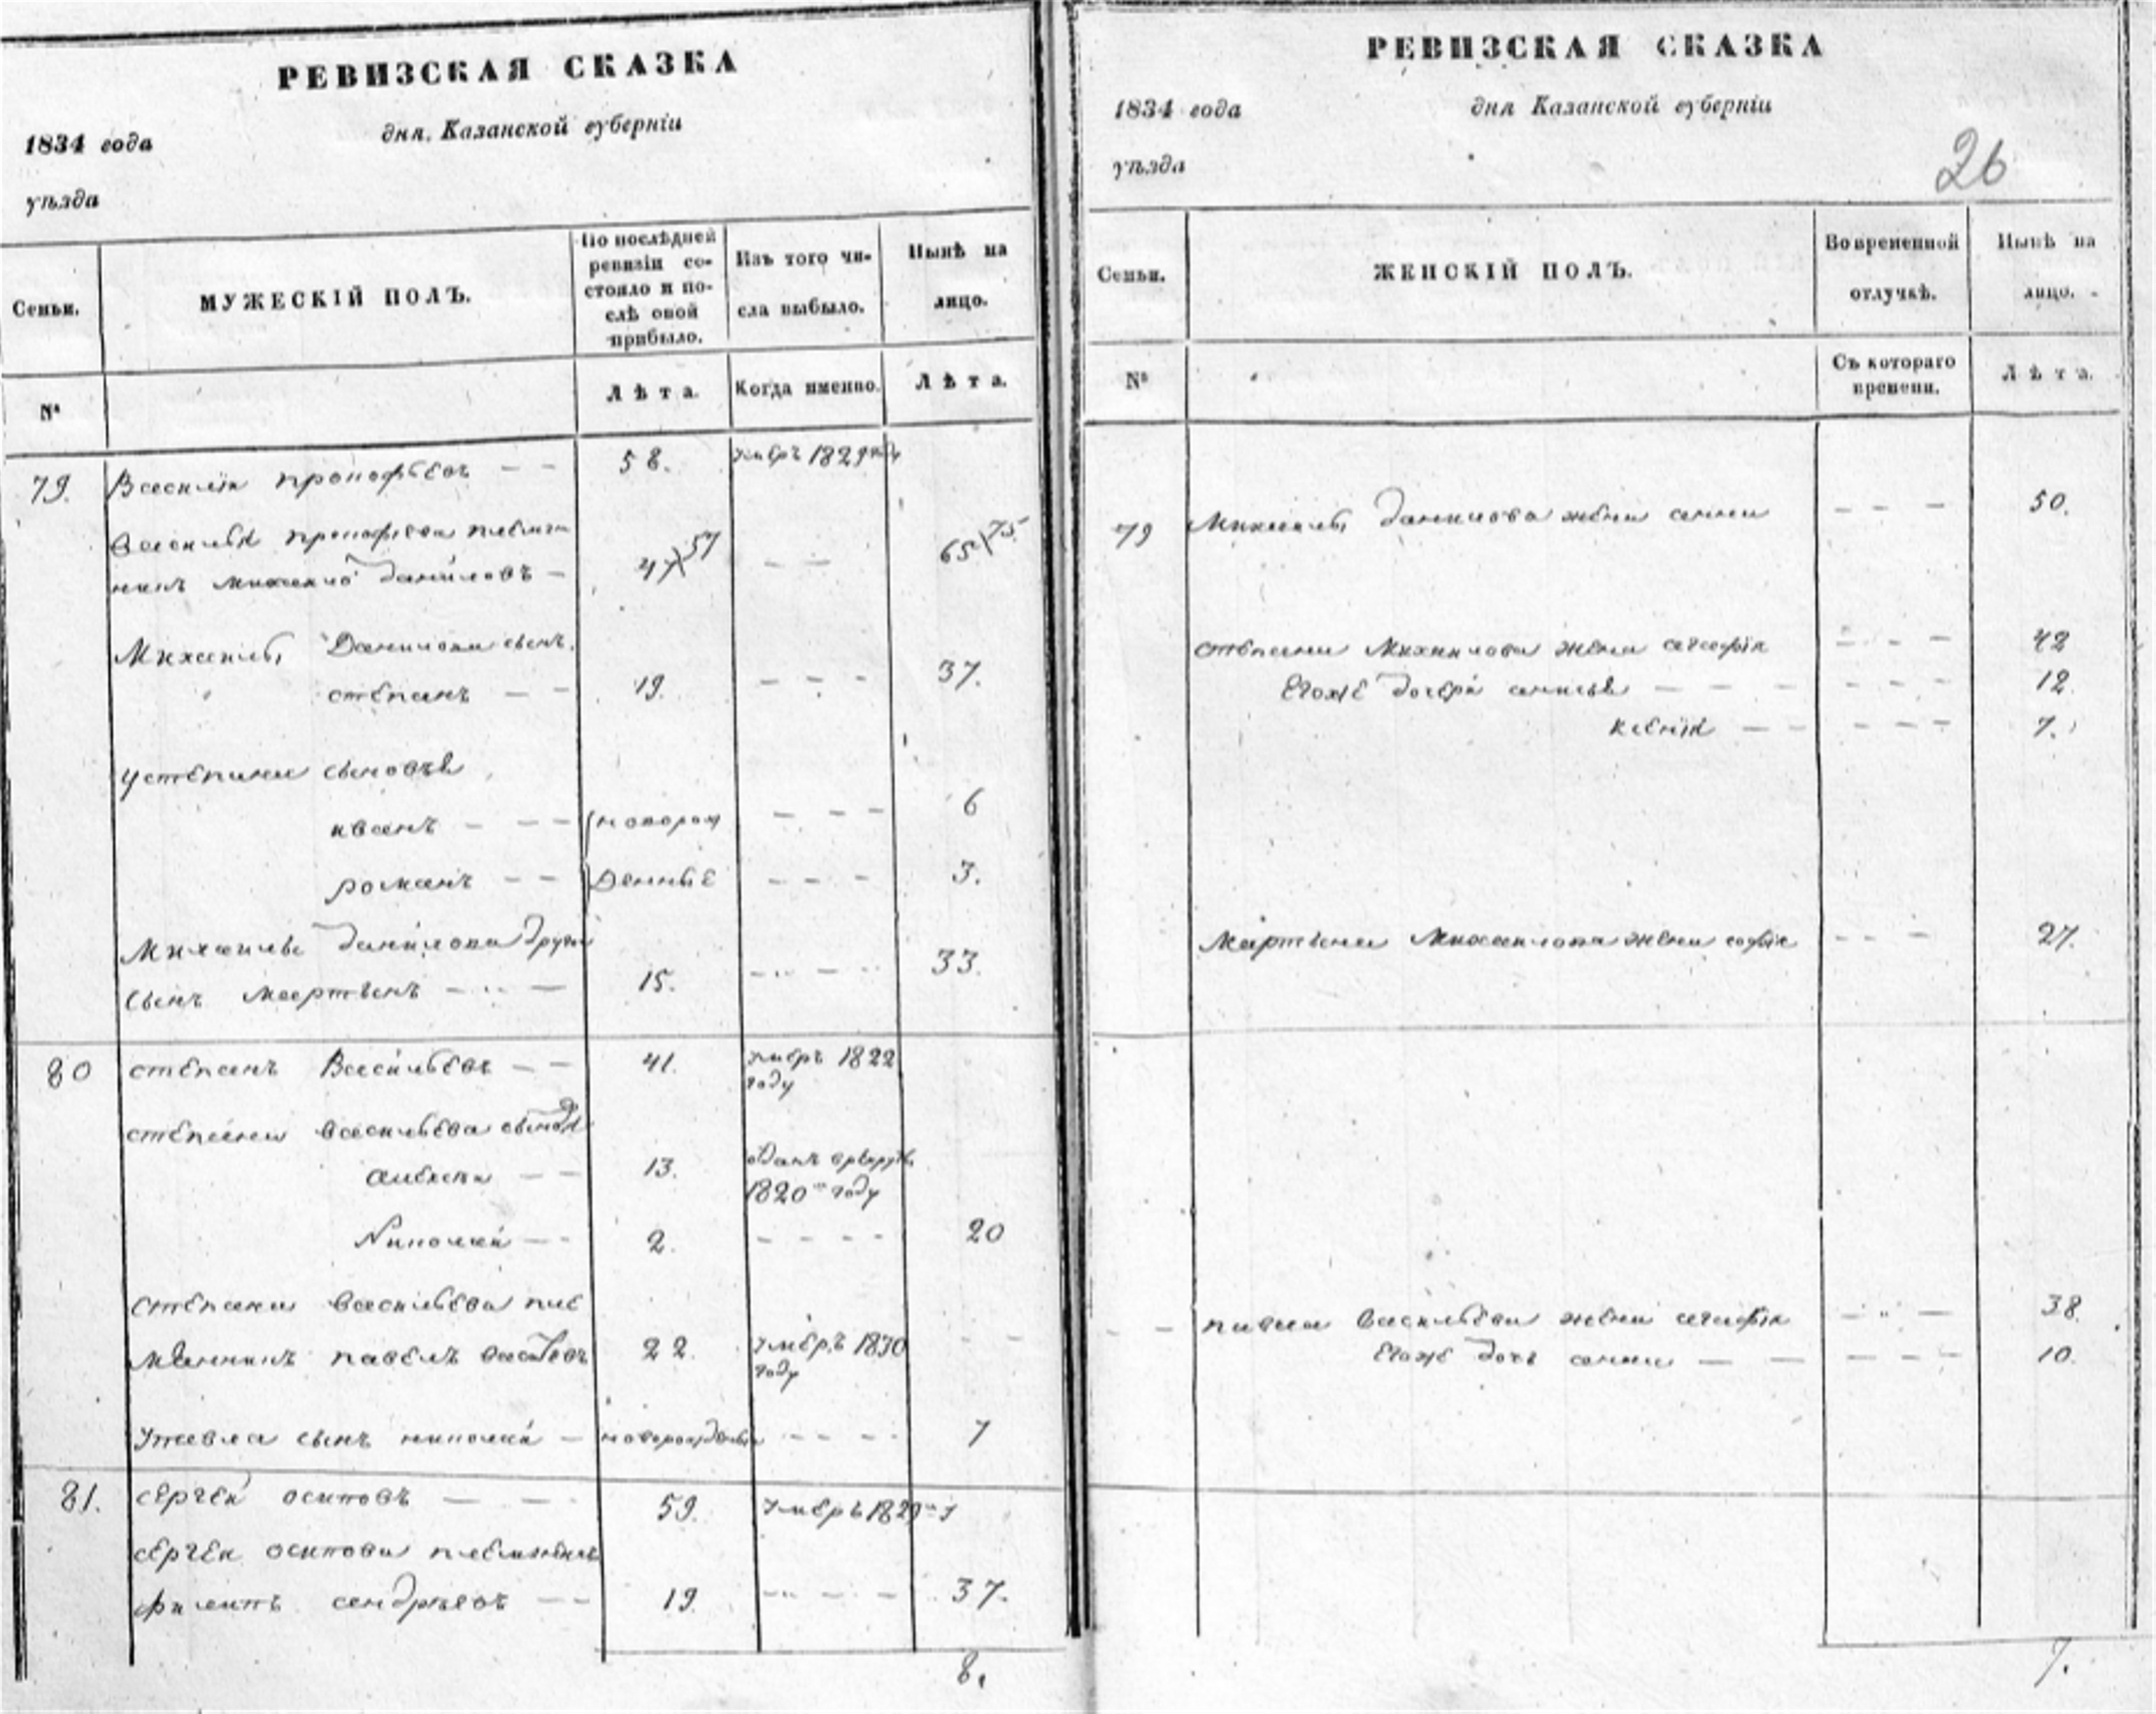 РЕВИЗСКАЯ СКАЗКА
1834 года
дня Казанской губерніи
уѣзда
Семьи.
МУЖЕСКІЙ ПОЛЪ.
По послѣдней ревизіи состояло и послѣ оной прибыло.
Изъ того числа выбыло.
Нынѣ на лицо.
№
Лѣта.
Когда именно.
Лѣта.
79. Василій прокофьевъ — — 58. умеръ 1829
Василья прокофьева племян
никъ михаило даниловъ — 47 57 — — 65 75
Михаилы Данилова сынъ
степанъ — — 19. — — — 37.
устепана сыновья
иванъ — — — новорож — — — 6
романъ — — Денные — — — 3.
Михаилы данилова другой
сынъ мартынъ — — — 15. — — — 33.
80 степанъ Васильевъ — — 41. умеръ 1822
году
степана васильева сыновья
алексей — — 13. отданъ врекруты
1820 году
Николай — — 2. — — — — 20
степана васильева пле
мянникъ павелъ васильевъ 22. умеръ 1830 — —
году
упавла сынъ николай — новорожденный — — — 7
81. сергей осиповъ — — 59. умеръ 1829
сергея осипова племянникъ
филипъ андреевъ — — 19. — — — 37.
8.
РЕВИЗСКАЯ СКАЗКА
1834 года
дня Казанской губерніи
уѣзда
26
Семьи.
ЖЕНСКІЙ ПОЛЪ.
Во временной отлучкѣ.
Нынѣ на лицо.
№
Съ котораго времени.
Лѣта.
79 Михаилы данилова жена анна — — — 50.
степана Михаилова жена агафія — — — 42
Егоже дочери анисья — — — — — — 12.
ксенія — — — — — 7.
Мартына Михаилова жена софія — — — 27.
павла васильева жена агафія — — — 38.
Егоже дочь анна — — — — — 10.
7.